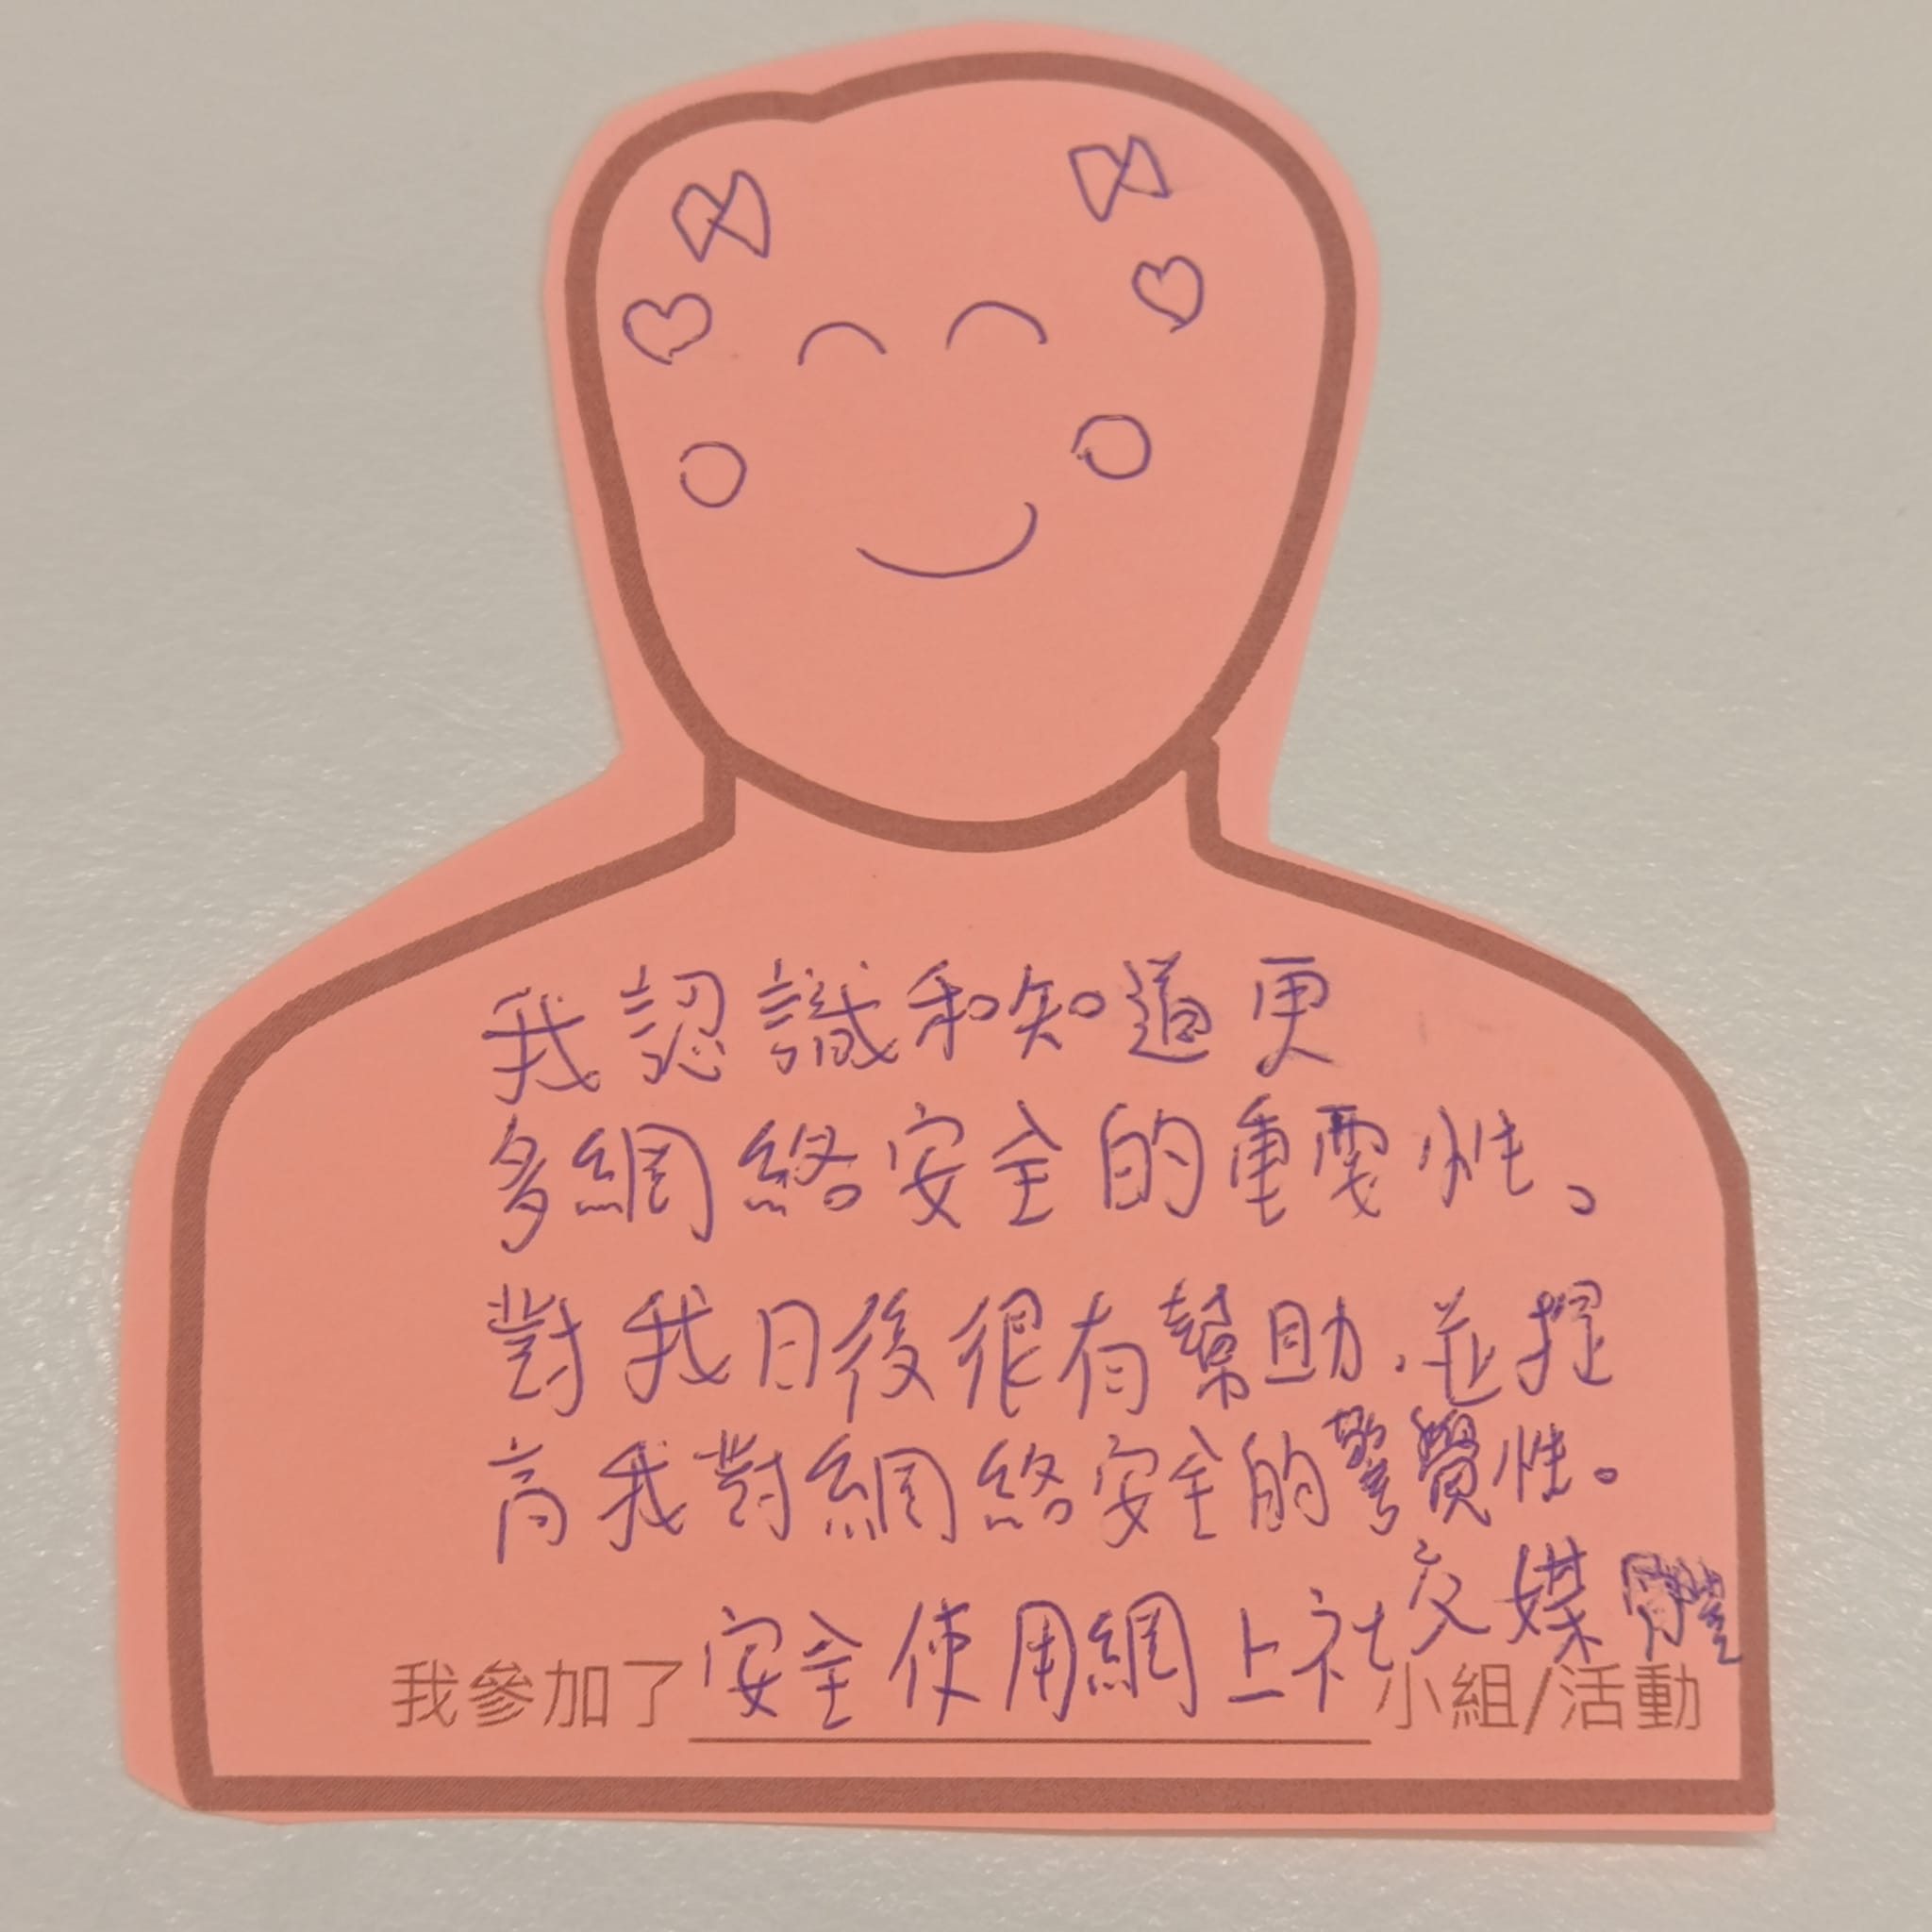 我認識和知道更
多網絡安全的重要性。
對我日後很有幫助，並提
高我對網絡安全的警覺性。
我參加了安全使用網上社交媒體小組/活動